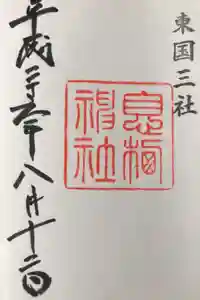 東国三社
息栖
神社
平成二十六年八月十二日